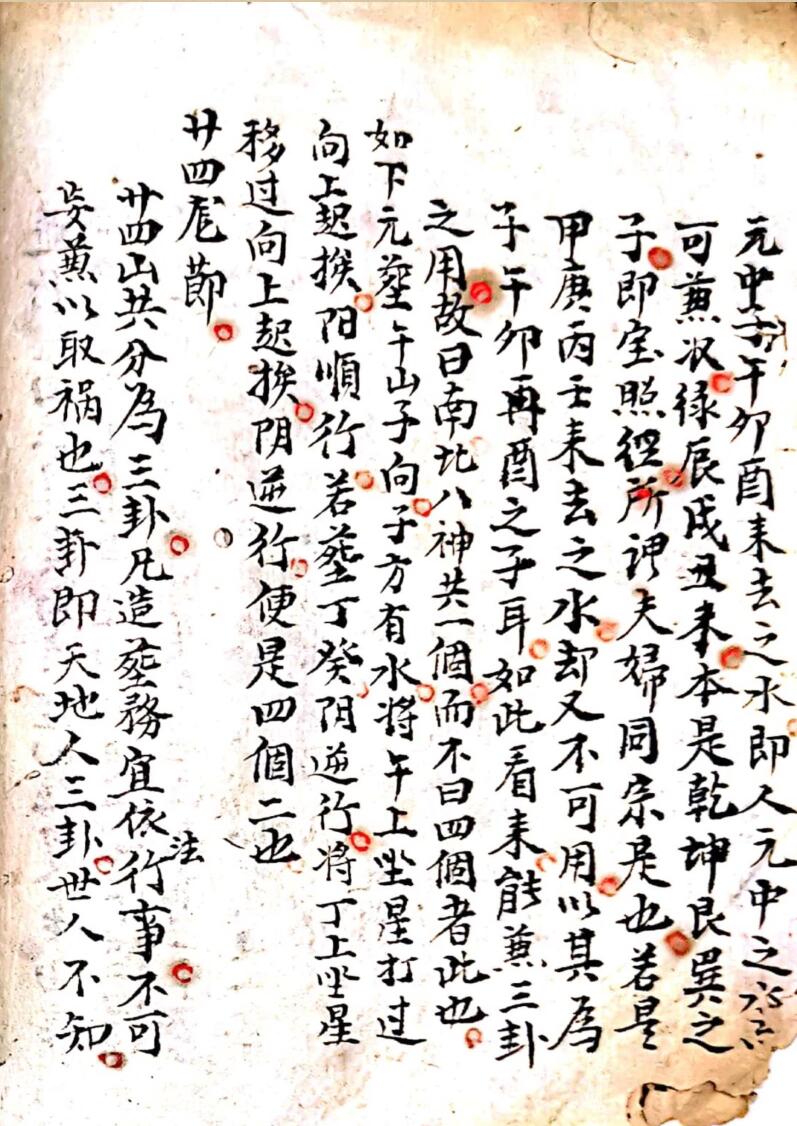 元中子午卯酉来去之水即人元中之
可兼収绿辰戌丑未本是乾坤艮巽之
子即宝照經所謂夫婦同宗是也若是
甲庚丙壬来去之水却又不可用以其為
子午卯再酉之子耳如此看来能兼三卦
之用故曰南北八神共一個而不曰四個者此也
如下元塟午山子向子方有水将午上坐星打过
向上起挨阳順行若塟丁癸阴逆行将丁上坐星
移过向上起挨阴逆行便是四個二也
廿四尨節
廿四山共分為三卦凡造塟務宜依法行事不可
妄兼以取祸也三卦即天地人三卦世人不知